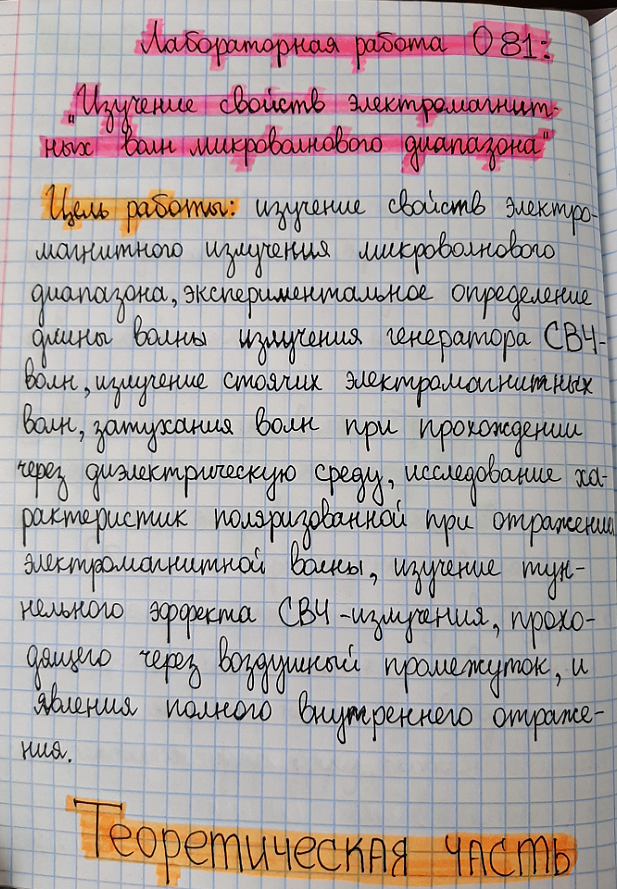 Лабораторная работа О 81:
"Изучение свойств электромагнит-
ных волн микроволнового диапазона"
Цель работы: изучение свойств электро-
магнитного излучения микроволнового
диапазона, экспериментальное определение
длины волны излучения генератора СВЧ-
волн, излучение стоячих электромагнитных
волн, затухания волн при прохождении
через диэлектрическую среду, исследование ха-
рактеристик поляризованной при отражении
электромагнитной волны, изучение тун-
нельного эффекта СВЧ-излучения, прохо-
дящего через воздушный промежуток, и
явления полного внутреннего отраже-
ния.
Теоретическая часть